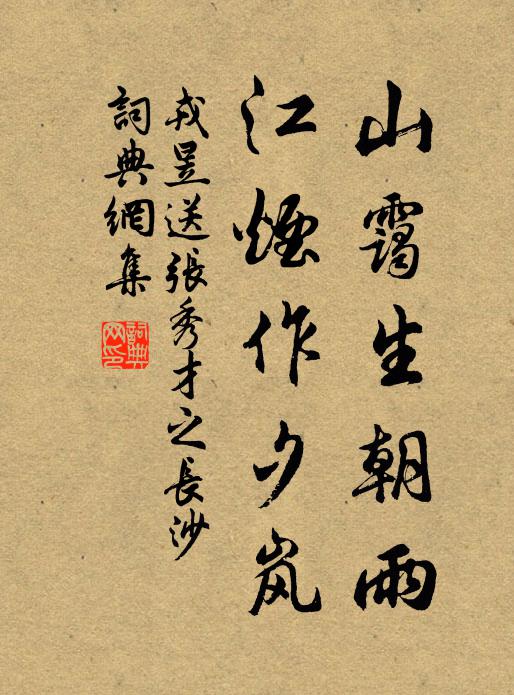 山靄生朝雨
江煙作夕岚
戎昱送張秀才之長沙
詞典網集
詞典网印